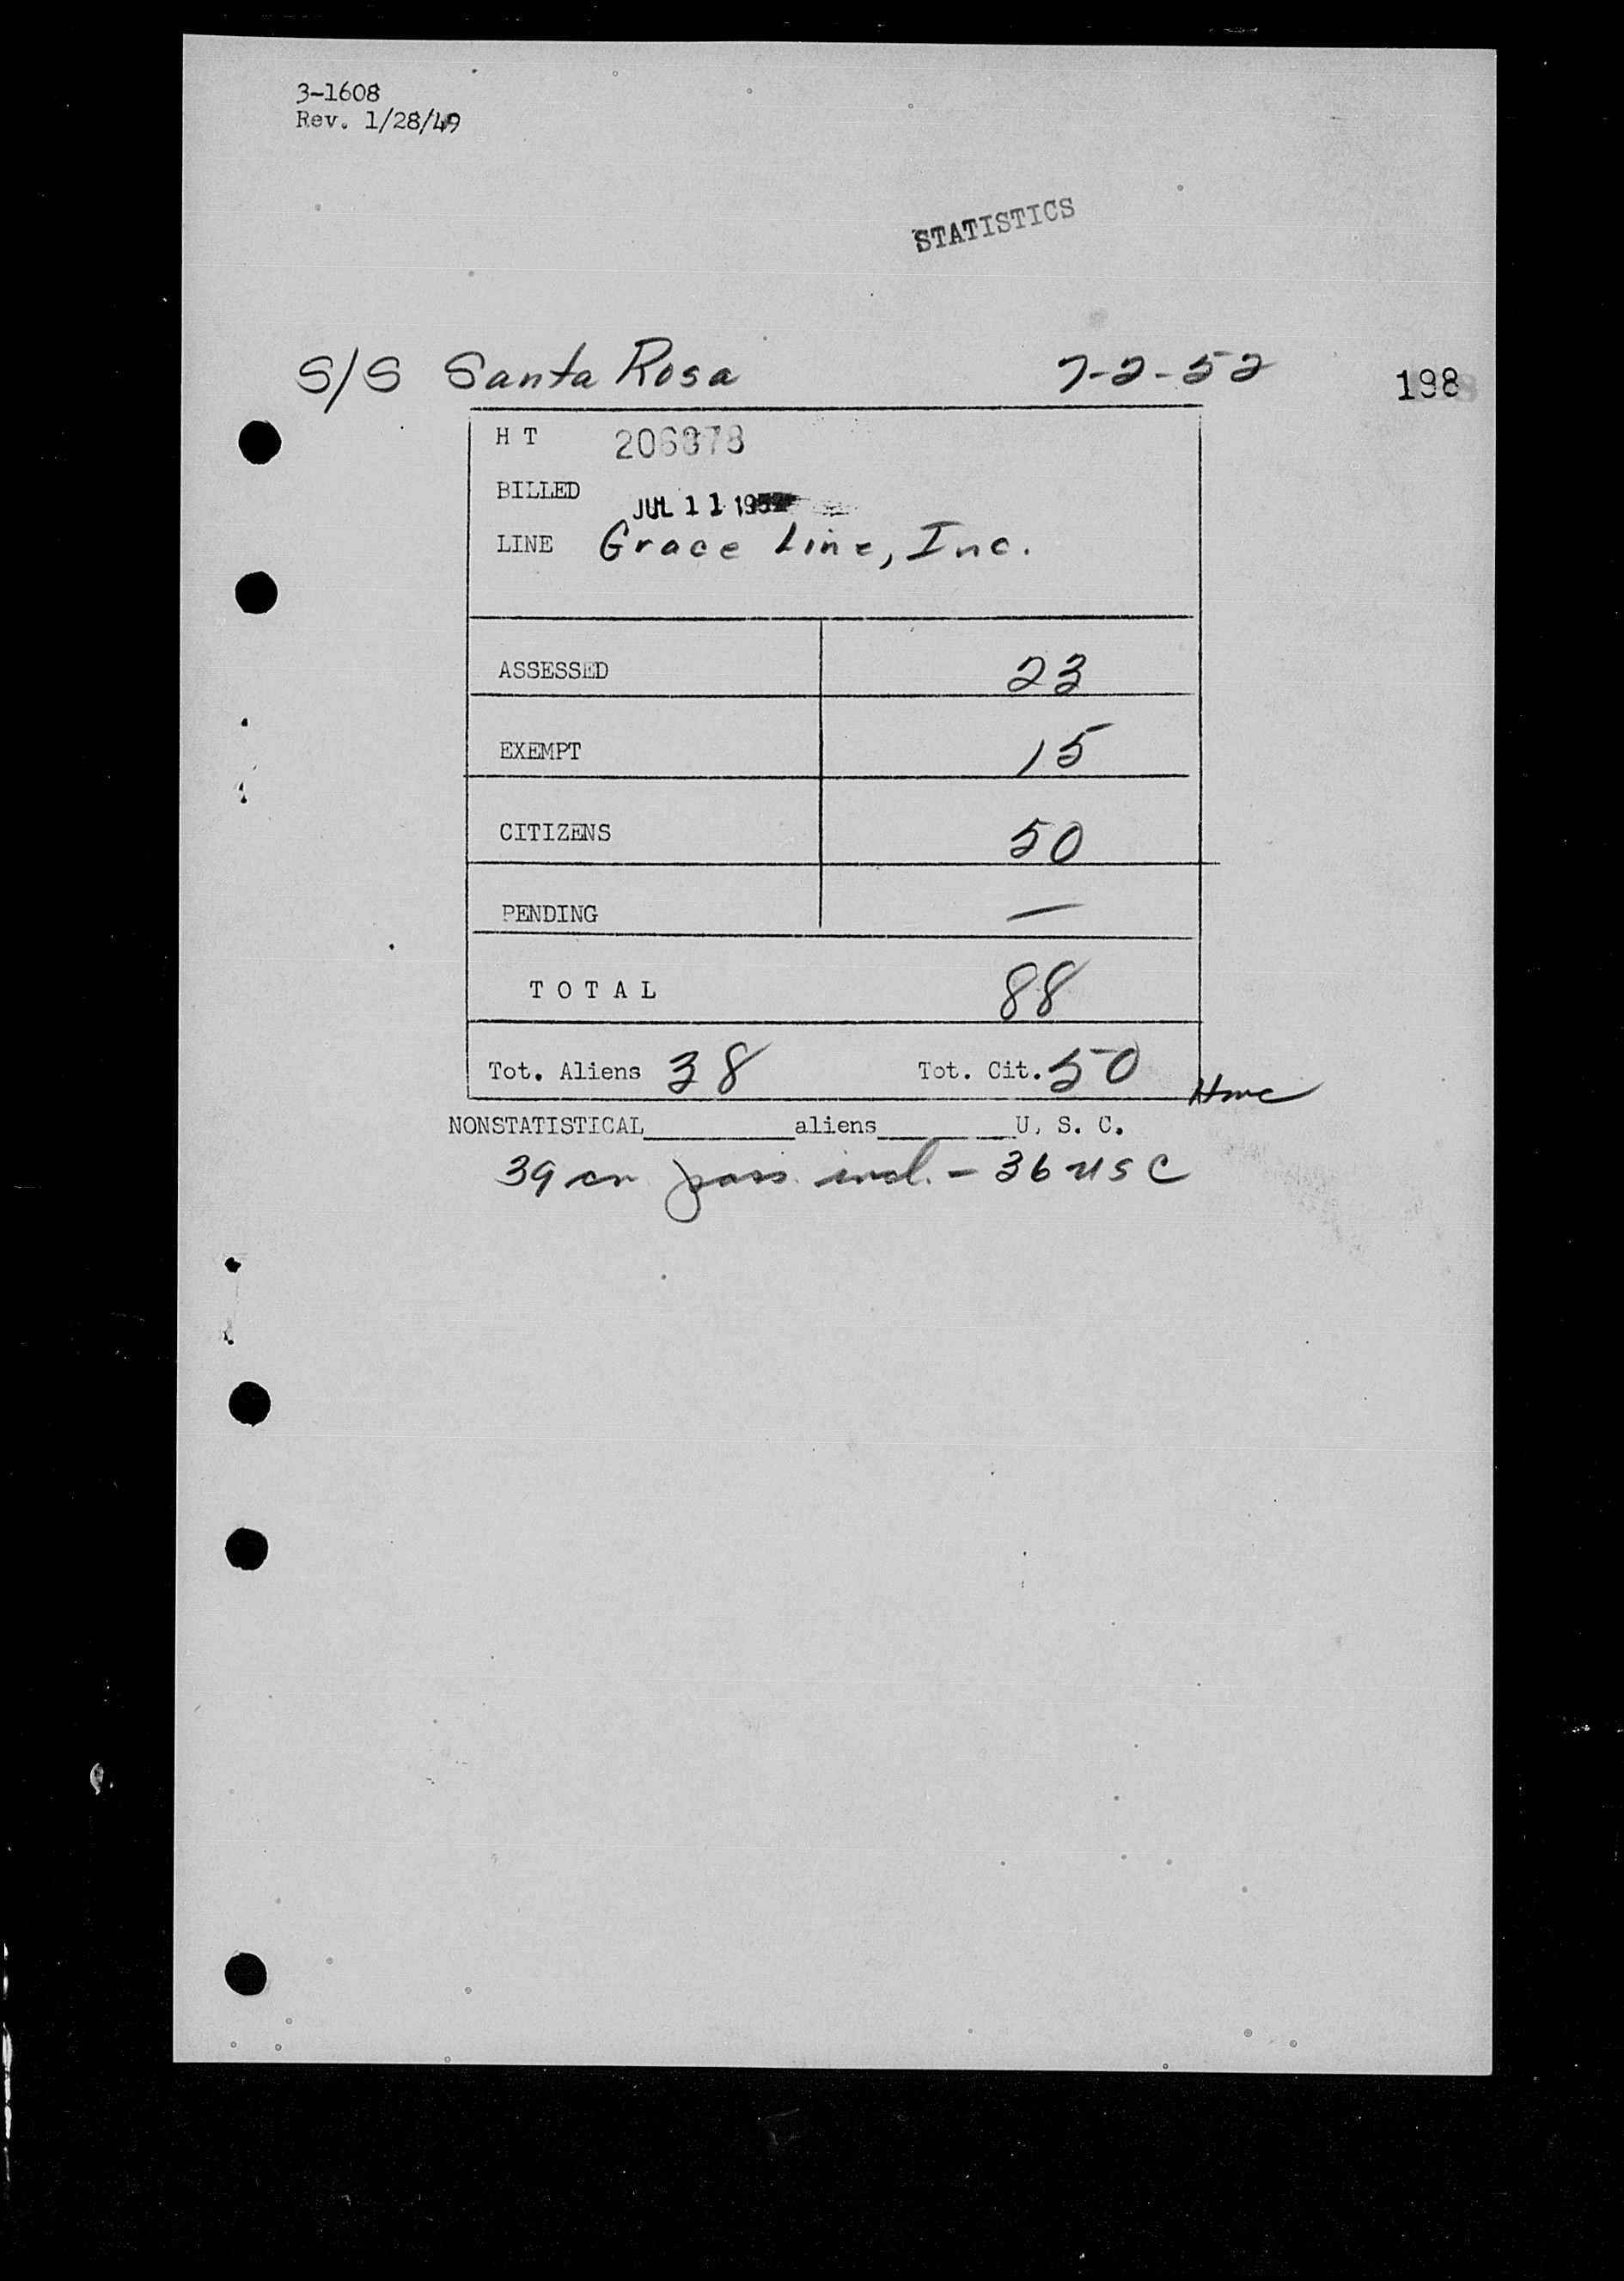 3-1608
Rev. 1/28/49
STATISTICS
S/S Santa Rosa 7-2-52 198
H T 206878
BILLED JUL 11 1952
LINE Grace Line, Inc.
ASSESSED 23
EXEMPT 15
CITIZENS 50
PENDING —
T O T A L 88
Tot. Aliens 38 Tot. Cit. 50
NONSTATISTICAL__________aliens__________U. S. C.
39 cr pass incl. - 36 USC